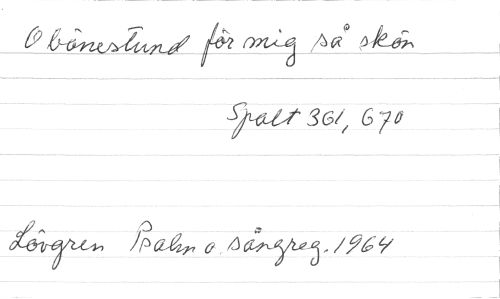 O bönestund för mig så skön
Spalt 361, 670
Lövgren Psalm o. sångreg. 1964